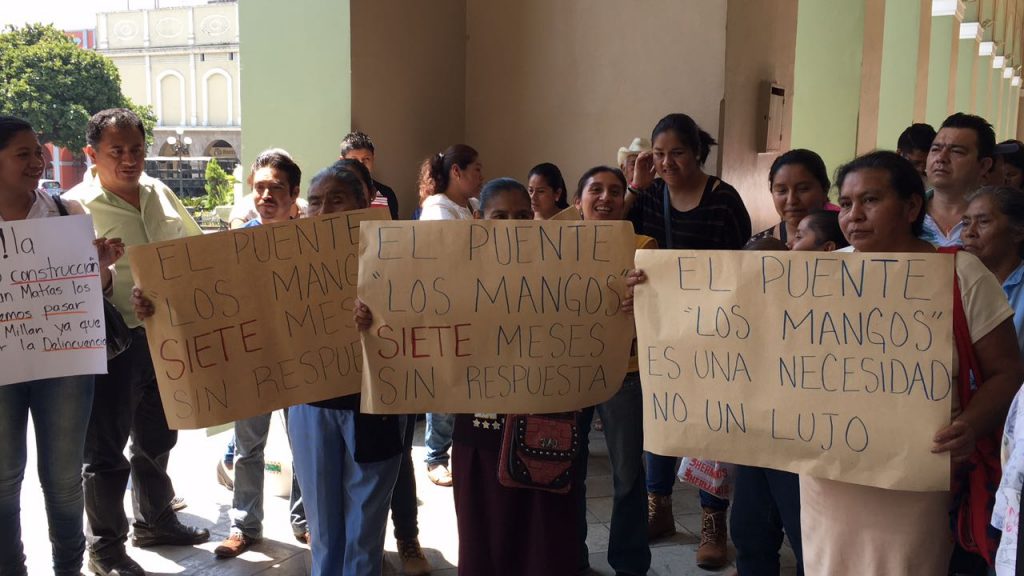 !la
construcción
Matías los
emos pasar
Millan ya que
r la Delincuencia
EL PUENTE
"LOS MANG
SIETE MES
SIN RESPUE
EL PUENTE
"LOS MANGOS"
SIETE MESES
SIN RESPUESTA
EL PUENTE
"LOS MANGOS"
ES UNA NECESIDAD
NO UN LUJO